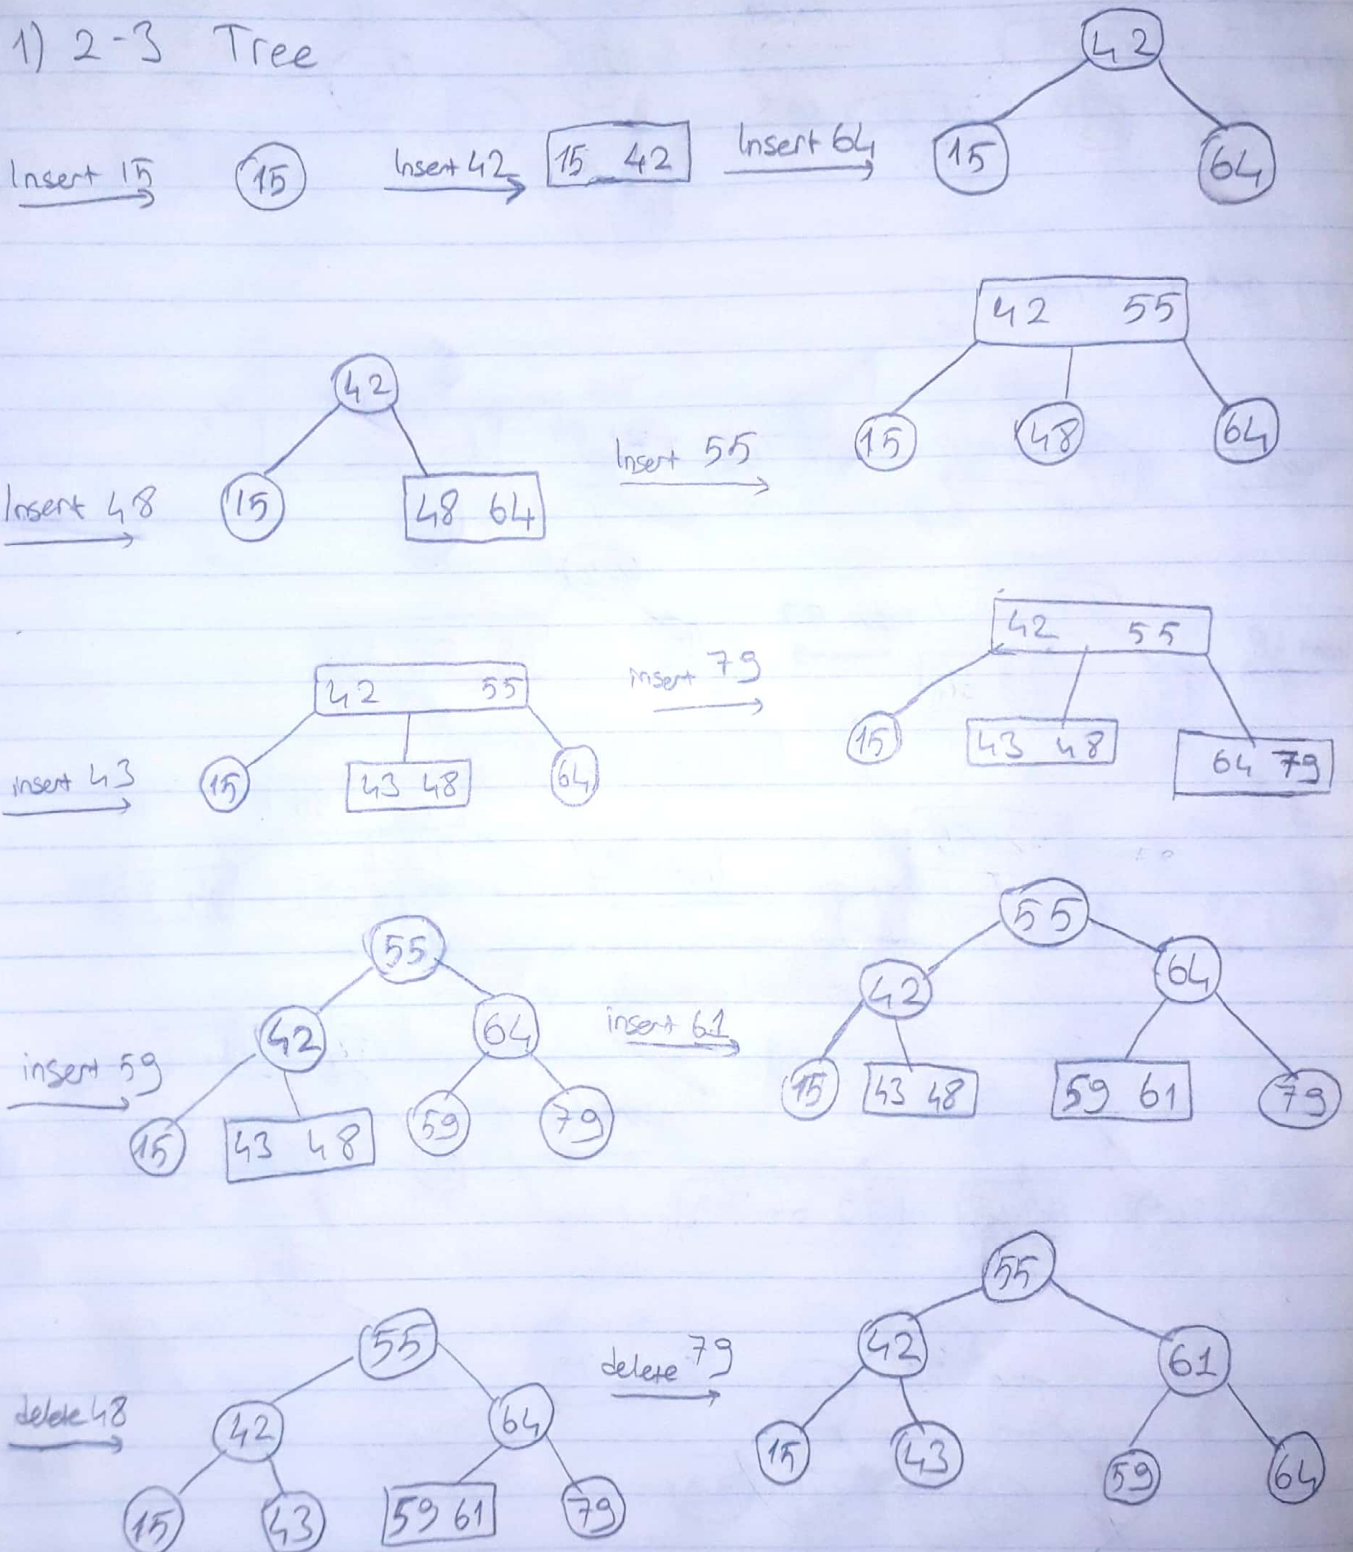 1) 2-3 Tree
Insert 15
15
Insert 42
15 42
Insert 64
42
15 64
Insert 48
42
15 48 64
Insert 55
42 55
15 48 64
insert 43
42 55
15 43 48 64
insert 79
42 55
15 43 48 64 79
insert 59
55
42 64
15 43 48 59 79
insert 61
55
42 64
15 43 48 59 61 79
delete 48
55
42 64
15 43 59 61 79
delete 79
55
42 61
15 43 59 64